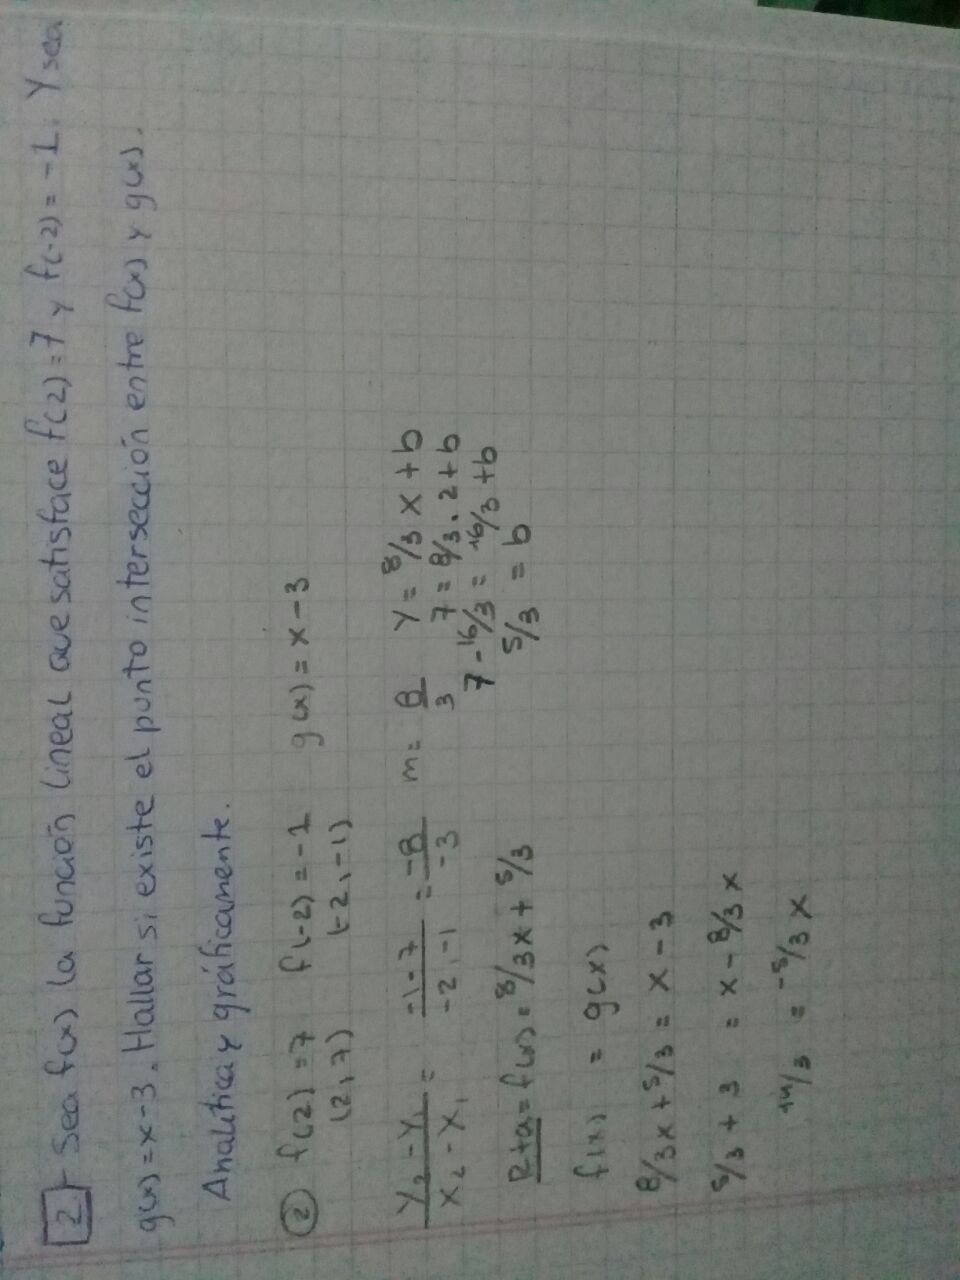 2 Sea f(x) la función lineal que satisface f(2)=7 y f(-2)=-1. Y sea
g(x)=x-3. Hallar si existe el punto intersección entre f(x) y g(x).
Analítica y gráficamente.
② f(2)=7 f(-2)=-1 g(x)=x-3
(2,7) (-2,-1)
y₂-y₁/x₂-x₁ = -1-7/-2,-1 = -8/-3 m=8/3 y=8/3x+b
7=8/3.2+b
7-16/3=16/3+b
5/3=b
Rta= f(x)=8/3x+5/3
f(x) = g(x)
8/3x+5/3=x-3
5/3+3 =x-8/3x
14/3 =-5/3x